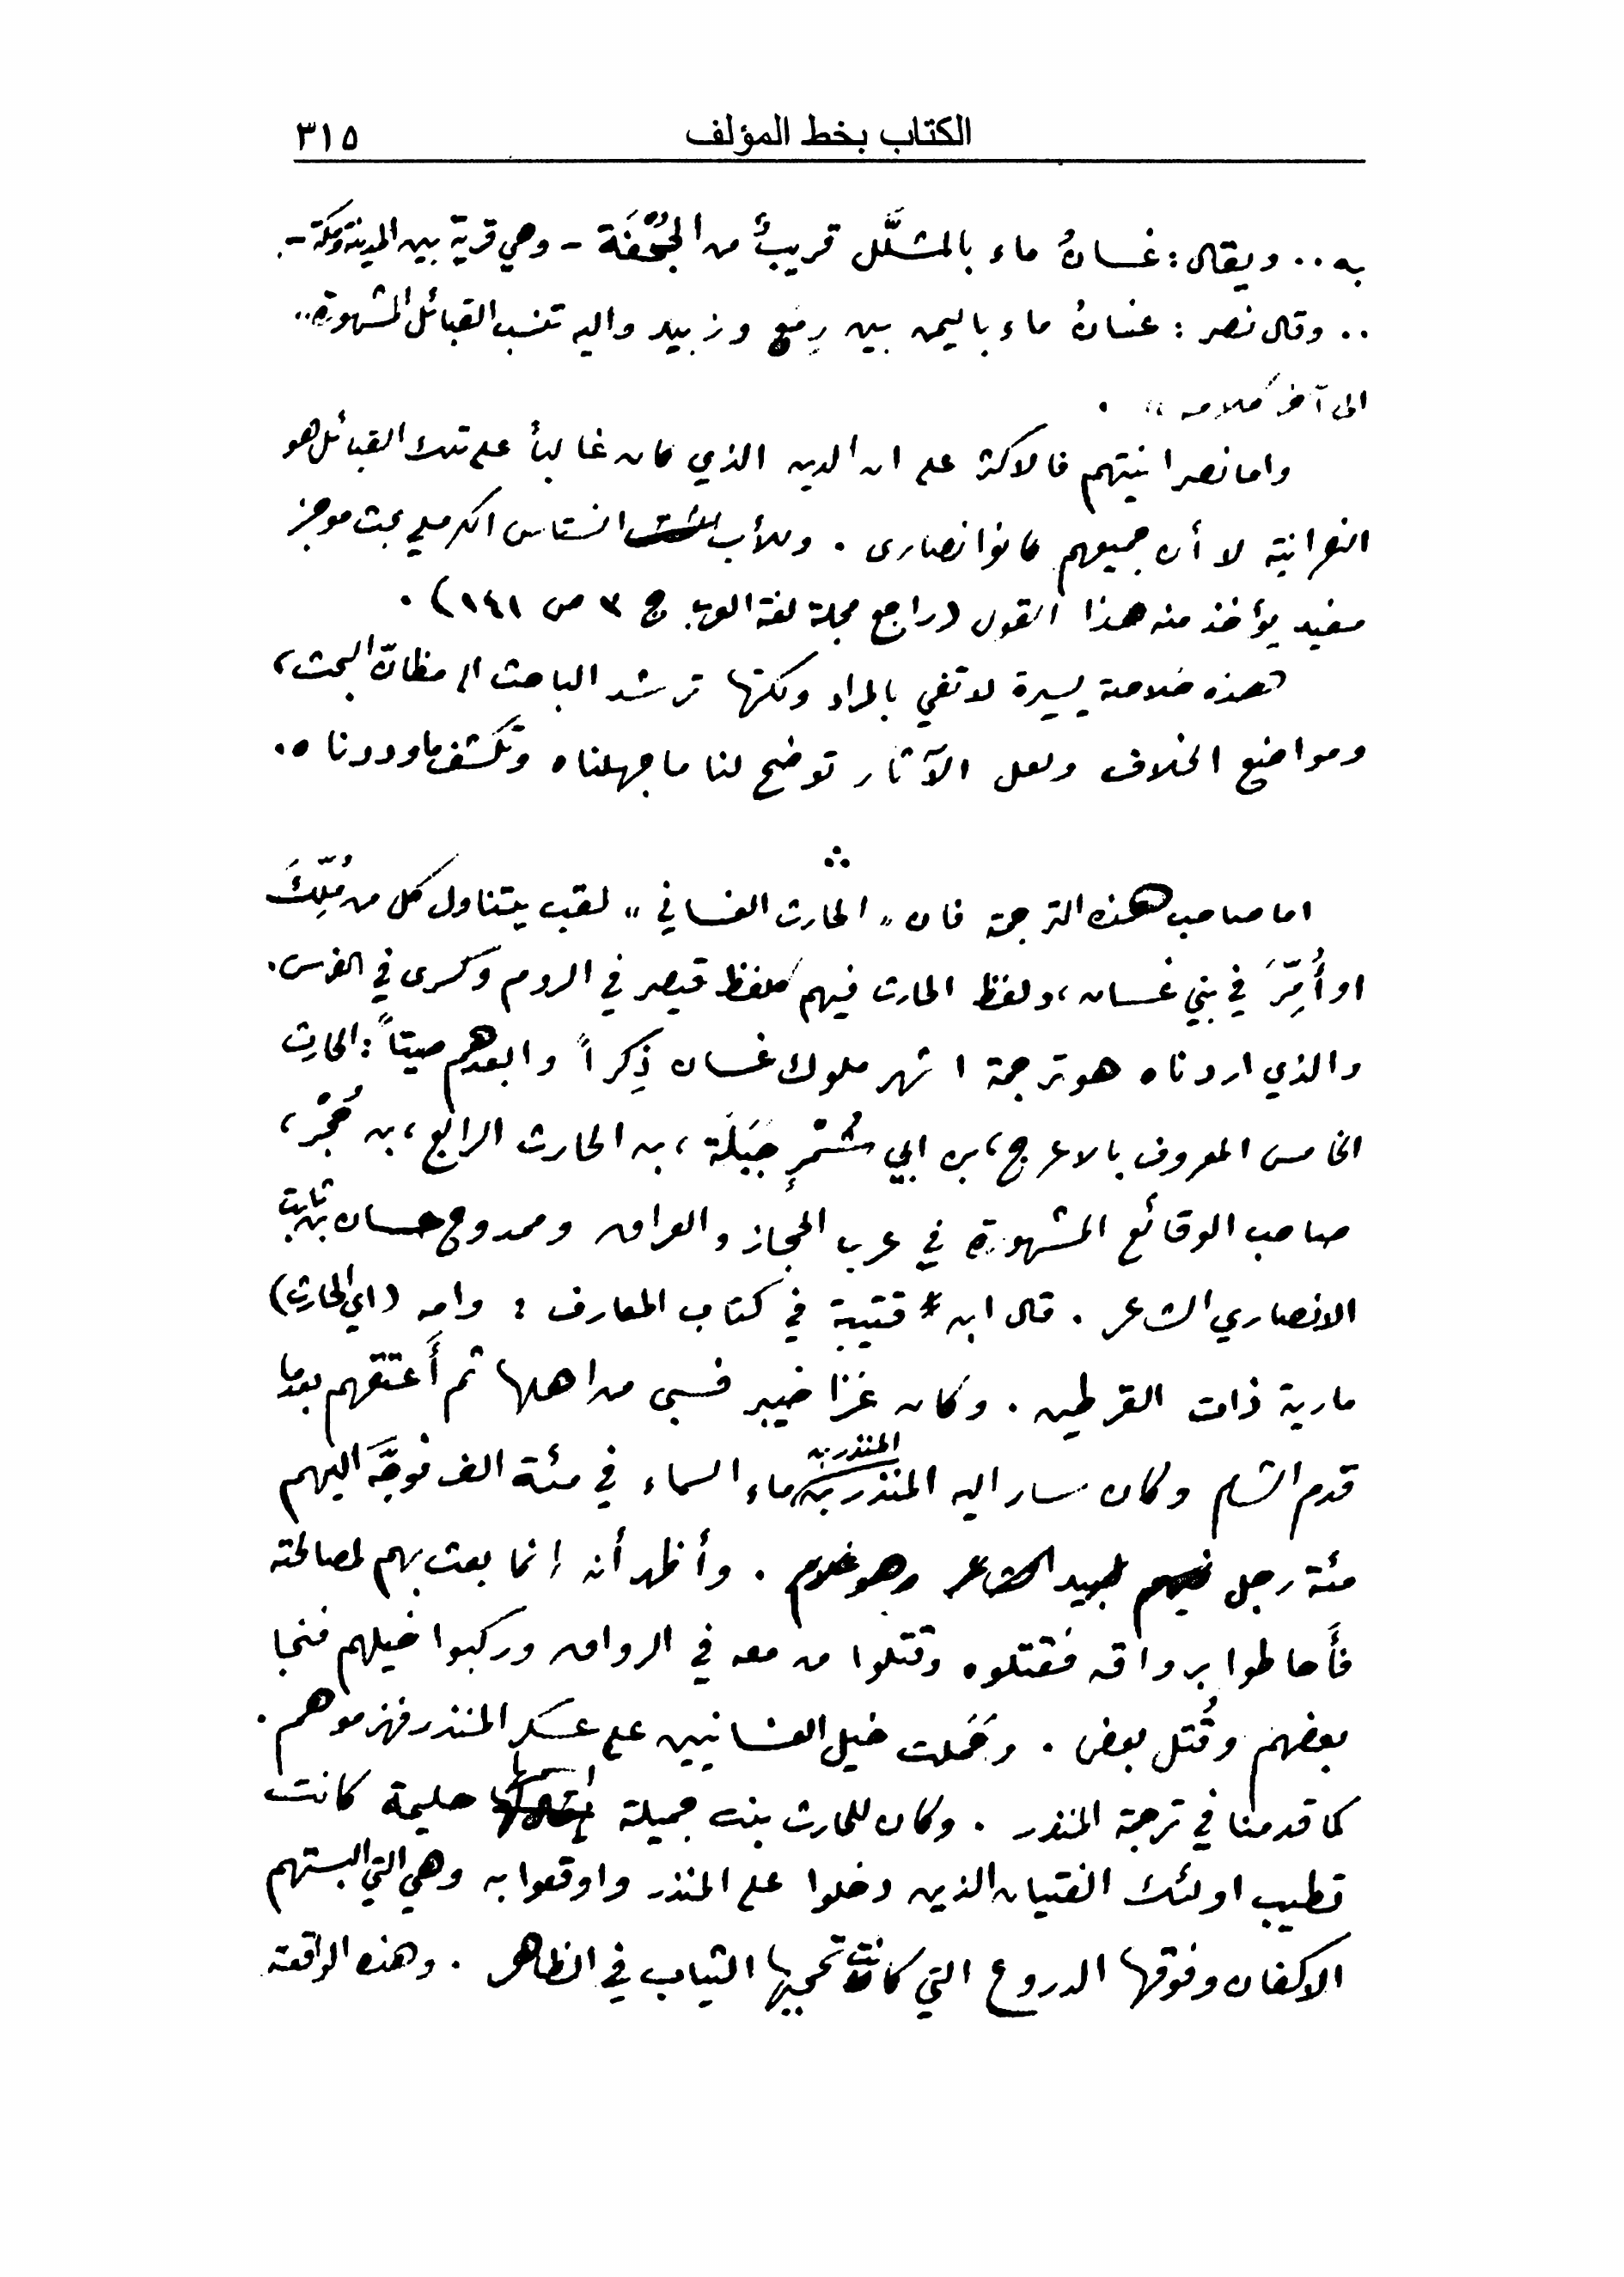 الكتاب بخط المؤلف ٣١٥
به .. ويقال : غسانُ ماء بالمشلَّل قريبٌ من الجُحْفَة - وهي قرية بين المدينة ومكة -.
.. وقال نصر : غسانُ ماء باليمن بين رِمَع وزبيد واليه تنسب القبائل المشهورة ..
الى آخر كلامه » .
واما نصرانيتهم فالاكثر على ان الدين الذي كان غالباً على تلك القبائل هو
النصرانية لا أن جميعهم كانوا نصارى . وللأب انستاس الكرملي بحث موجز
مفيد يؤخذ منه هذا القول (راجع مجلة لغة العرب ج ٣ ص ١٤١) .
هذه خلاصة يسيرة لا تفي بالمراد ولكنها ترشد الباحث الى مظانّ البحث ،
ومواضع الخلاف ولعل الآثار توضح لنا ما جهلناه وتكشف ما وددناه .
اما صاحب هذه الترجمة فان « الحارث الغساني » لقب يتناول كل من مُلِّكَ
او أُمِّرَ في بني غسان ، ولفظ الحارث فيهم كلفظ قيصر في الروم وكسرى في الفرس .
والذي اردناه هو ترجمة اشهر ملوك غسان ذِكراً وابعدهم صيتاً : الحارث
الخامس المعروف بالاعرج ، بن ابي شَمْرٍ جَبَلَة ، بن الحارث الرابع ، بن حُجْر ،
صاحب الوقائع المشهورة في عرب الحجاز والعراق وممدوح حسان بن ثابت
الانصاري الشاعر . قال ابن قتيبة في كتاب المعارف : وامه (اي الحارث)
مارية ذات القرطين . وكان غزا خيبر فسبى من اهلها ثم أَعتقهم بعدما
قدم الشام وكان سار اليه المنذر بن المنذر بن ماء السماء في مئة الف فوجَّه اليهم
مئة رجل فيهم لبيد الشاعر وهو غلام . وأظهر أنه إنما بعث بهم لمصالحته
فأَحاطوا برواقه فقتلوه وقتلوا من معه في الرواق وركبوا خيلهم فنجا
بعضهم وقُتل بعض . وحَمَلت خيل الغسانيين على عسكر المنذر فهزموهم .
كما قدمنا في ترجمة المنذر . وكان للحارث بنت جميلة اسمها حليمة كانت
تطيب اولئك الفتيان الذين دخلوا على المنذر واوقعوا به وهي التي البستهم
الاكفان وفوقها الدروع التي كانت تحجبها الثياب في الظاهر . وهذه الواقعة